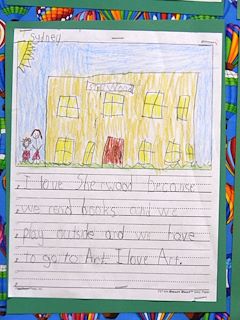 Sydney
Sherwood
I love Sherwood because
we read books and we
play outside and we have
to go to Art. I love Art.